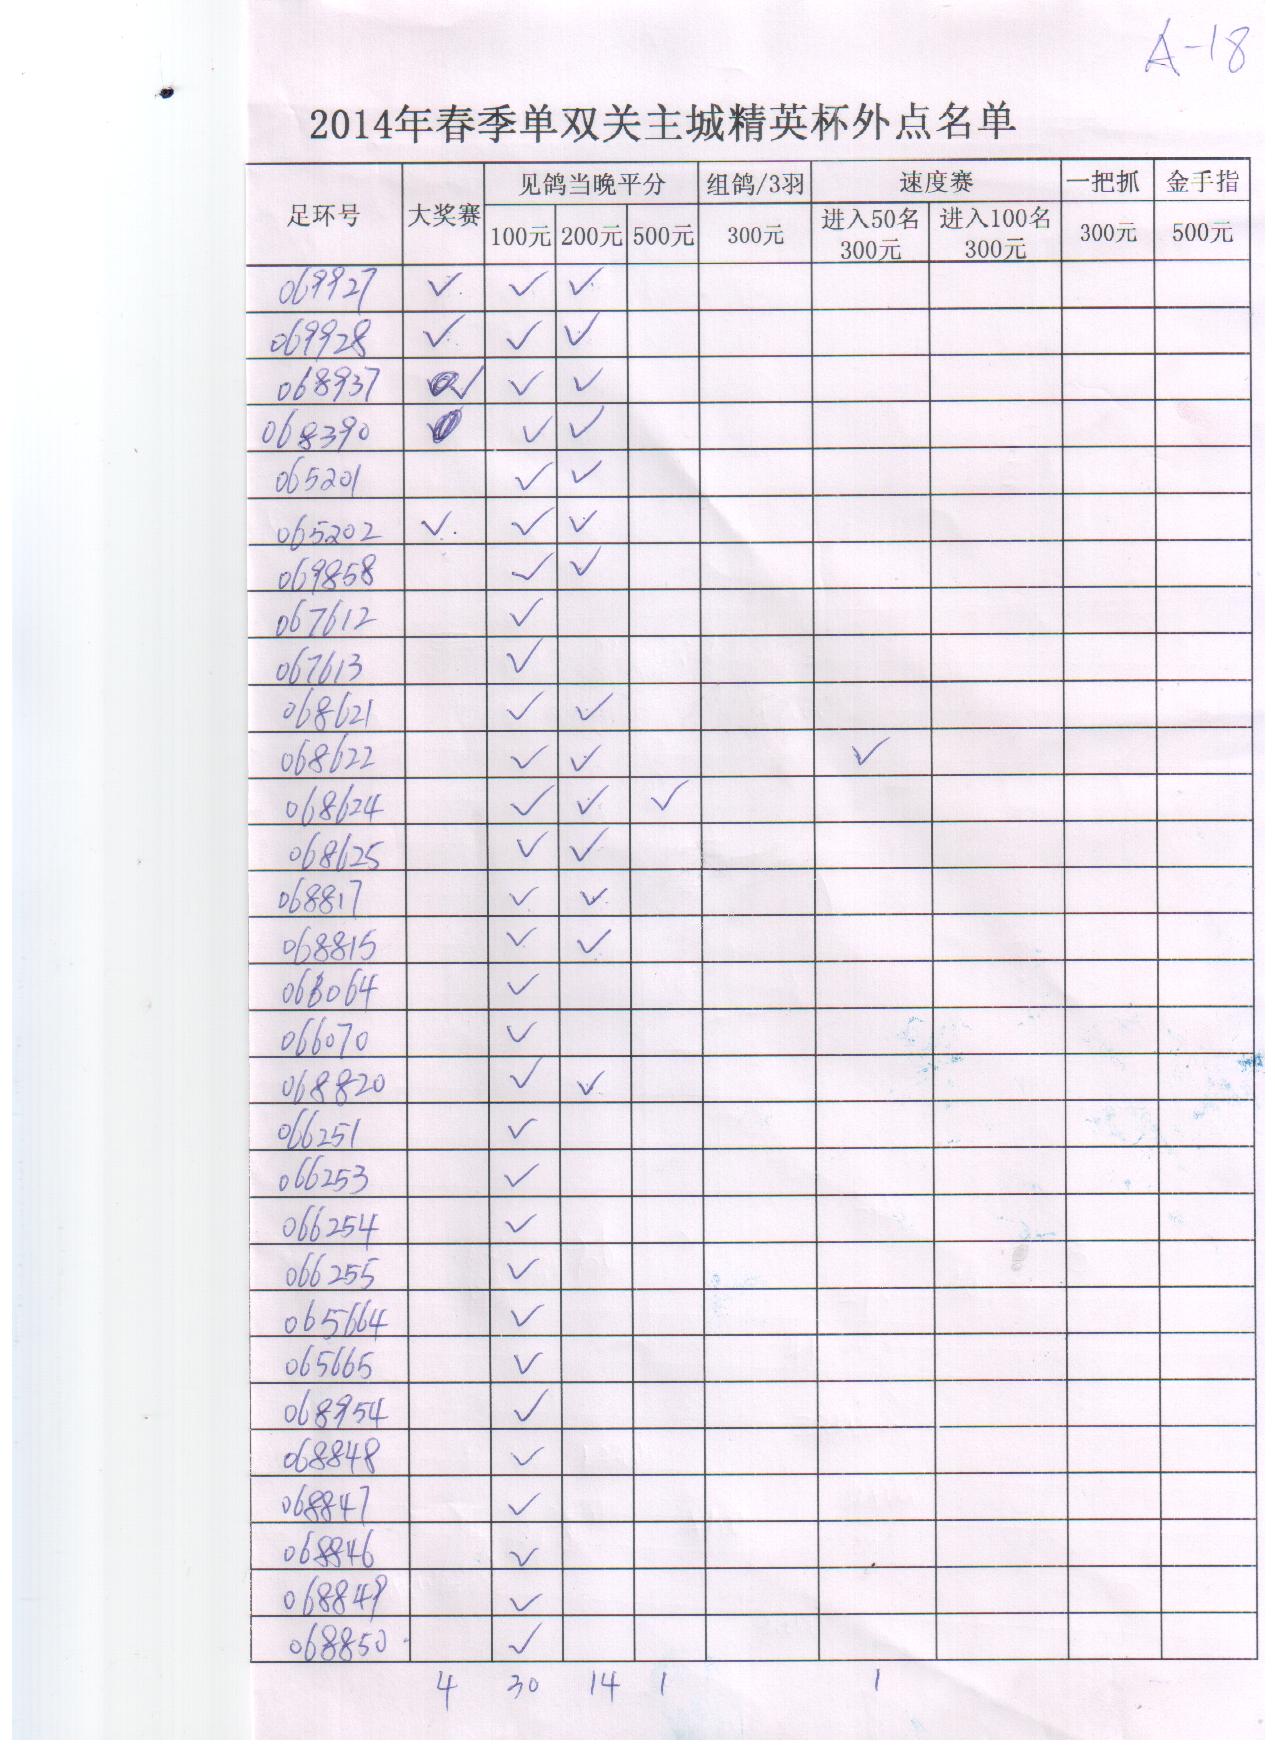 A-18
2014年春季单双关主城精英杯外点名单
足环号 大奖赛 见鸽当晚平分 组鸽/3羽 速度赛 一把抓 金手指
100元 200元 500元 300元 进入50名 300元 进入100名 300元 300元 500元
069927 ✓ ✓ ✓
069928 ✓ ✓ ✓
068937 ✓ ✓ ✓
068390 ✓ ✓
065201 ✓ ✓
065202 ✓ ✓ ✓
069858 ✓ ✓
067612 ✓
067613 ✓
068621 ✓ ✓
068622 ✓ ✓ ✓
068624 ✓ ✓ ✓
068625 ✓ ✓
068817 ✓ ✓
068815 ✓ ✓
✓
066070 ✓
068820 ✓ ✓
066251 ✓
066253 ✓
066254 ✓
066255 ✓
065664 ✓
065665 ✓
068954 ✓
068848 ✓
068847 ✓
068846 ✓
068849 ✓
068850 ✓
4 30 14 1 1